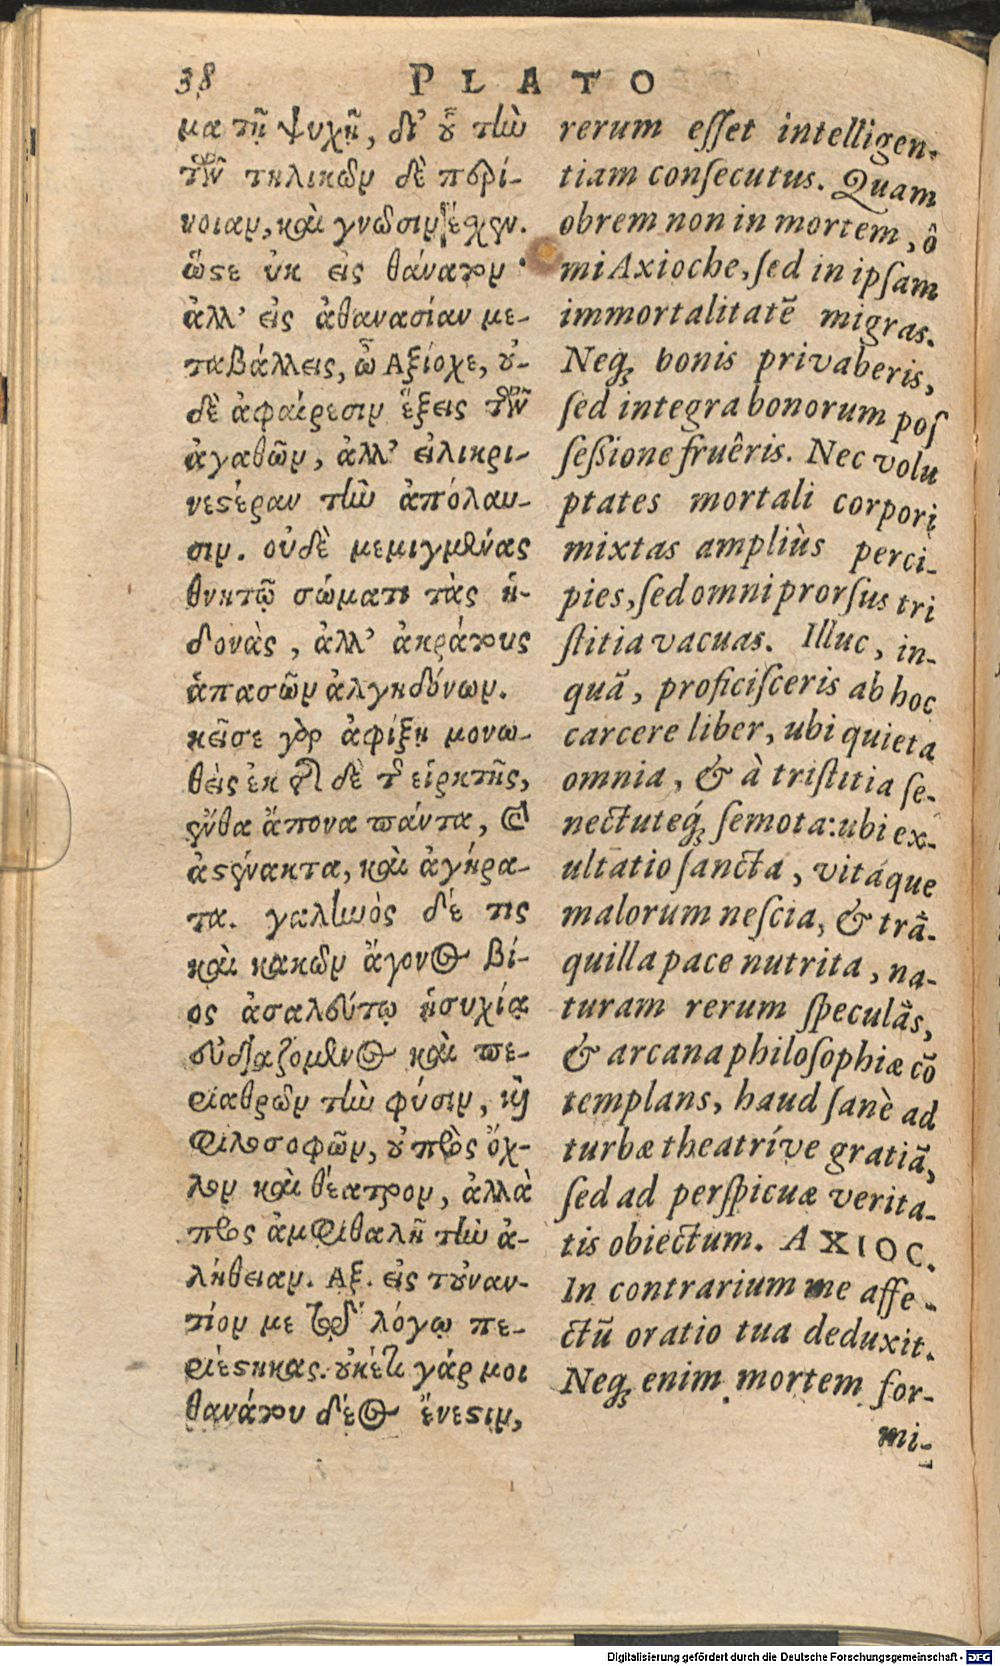 38
PLATO
μα τῇ ψυχῇ, δι' οὗ τὴν
τῶν τηλικῶν δὲ περί-
νοιαν, καὶ γνῶσιν ἔχειν.
ὥστε οὐκ εἰς θάνατον
ἀλλ' εἰς ἀθανασίαν με-
ταβάλλεις, ὦ Αξίοχε, οὐ-
δὲ ἀφαίρεσιν ἕξεις τῶν
ἀγαθῶν, ἀλλ' εἰλικρι-
νεστέραν τὴν ἀπόλαυ-
σιν. οὐδὲ μεμιγμένας
θνητῷ σώματι τὰς ἡ-
δονὰς, ἀλλ' ἀκράτους
ἁπασῶν ἀλγηδόνων.
κεῖσε γὰρ ἀφίξῃ μονω-
θεὶς ἐκ τῆσδε τῆς εἱρκτῆς,
ἔνθα ἄπονα πάντα, καὶ
ἀστένακτα, καὶ ἀγήρα-
τα. γαληνὸς δέ τις
καὶ κακῶν ἄγονος βί-
ος ἀσαλεύτῳ ἡσυχίᾳ
εὐδιαζόμενος καὶ πε-
ριαθρῶν τὴν φύσιν, καὶ
φιλοσοφῶν, οὐ πρὸς ὄχ-
λον καὶ θέατρον, ἀλλὰ
πρὸς ἀμφιθαλῆ τὴν ἀ-
λήθειαν. Αξ. εἰς τοὐναν-
τίον με τῷδε λόγῳ πε-
ριέστηκας. οὐκέτι γάρ μοι
θανάτου δέος ἔνεστιν,
rerum esset intelligen-
tiam consecutus. Quam
obrem non in mortem, ô
mi Axioche, sed in ipsam
immortalitatē migras.
Neq; bonis privaberis,
sed integra bonorum pos
sessione fruêris. Nec volu
ptates mortali corpori
mixtas ampliùs perci-
pies, sed omni prorsus tri
stitia vacuas. Illuc, in-
quã, proficisceris ab hoc
carcere liber, ubi quieta
omnia, & à tristitia se-
nectuteq́; semota: ubi ex-
ultatio sancta, vitáque
malorum nescia, & trã-
quilla pace nutrita, na-
turam rerum speculãs,
& arcana philosophiæ cõ
templans, haud sanè ad
turbæ theatríve gratiã,
sed ad perspicuæ verita-
tis obiectum. AXIOC.
In contrarium me affe-
ctū oratio tua deduxit.
Neq; enim mortem for-
mi-
Digitalisierung gefördert durch die Deutsche Forschungsgemeinschaft - DFG